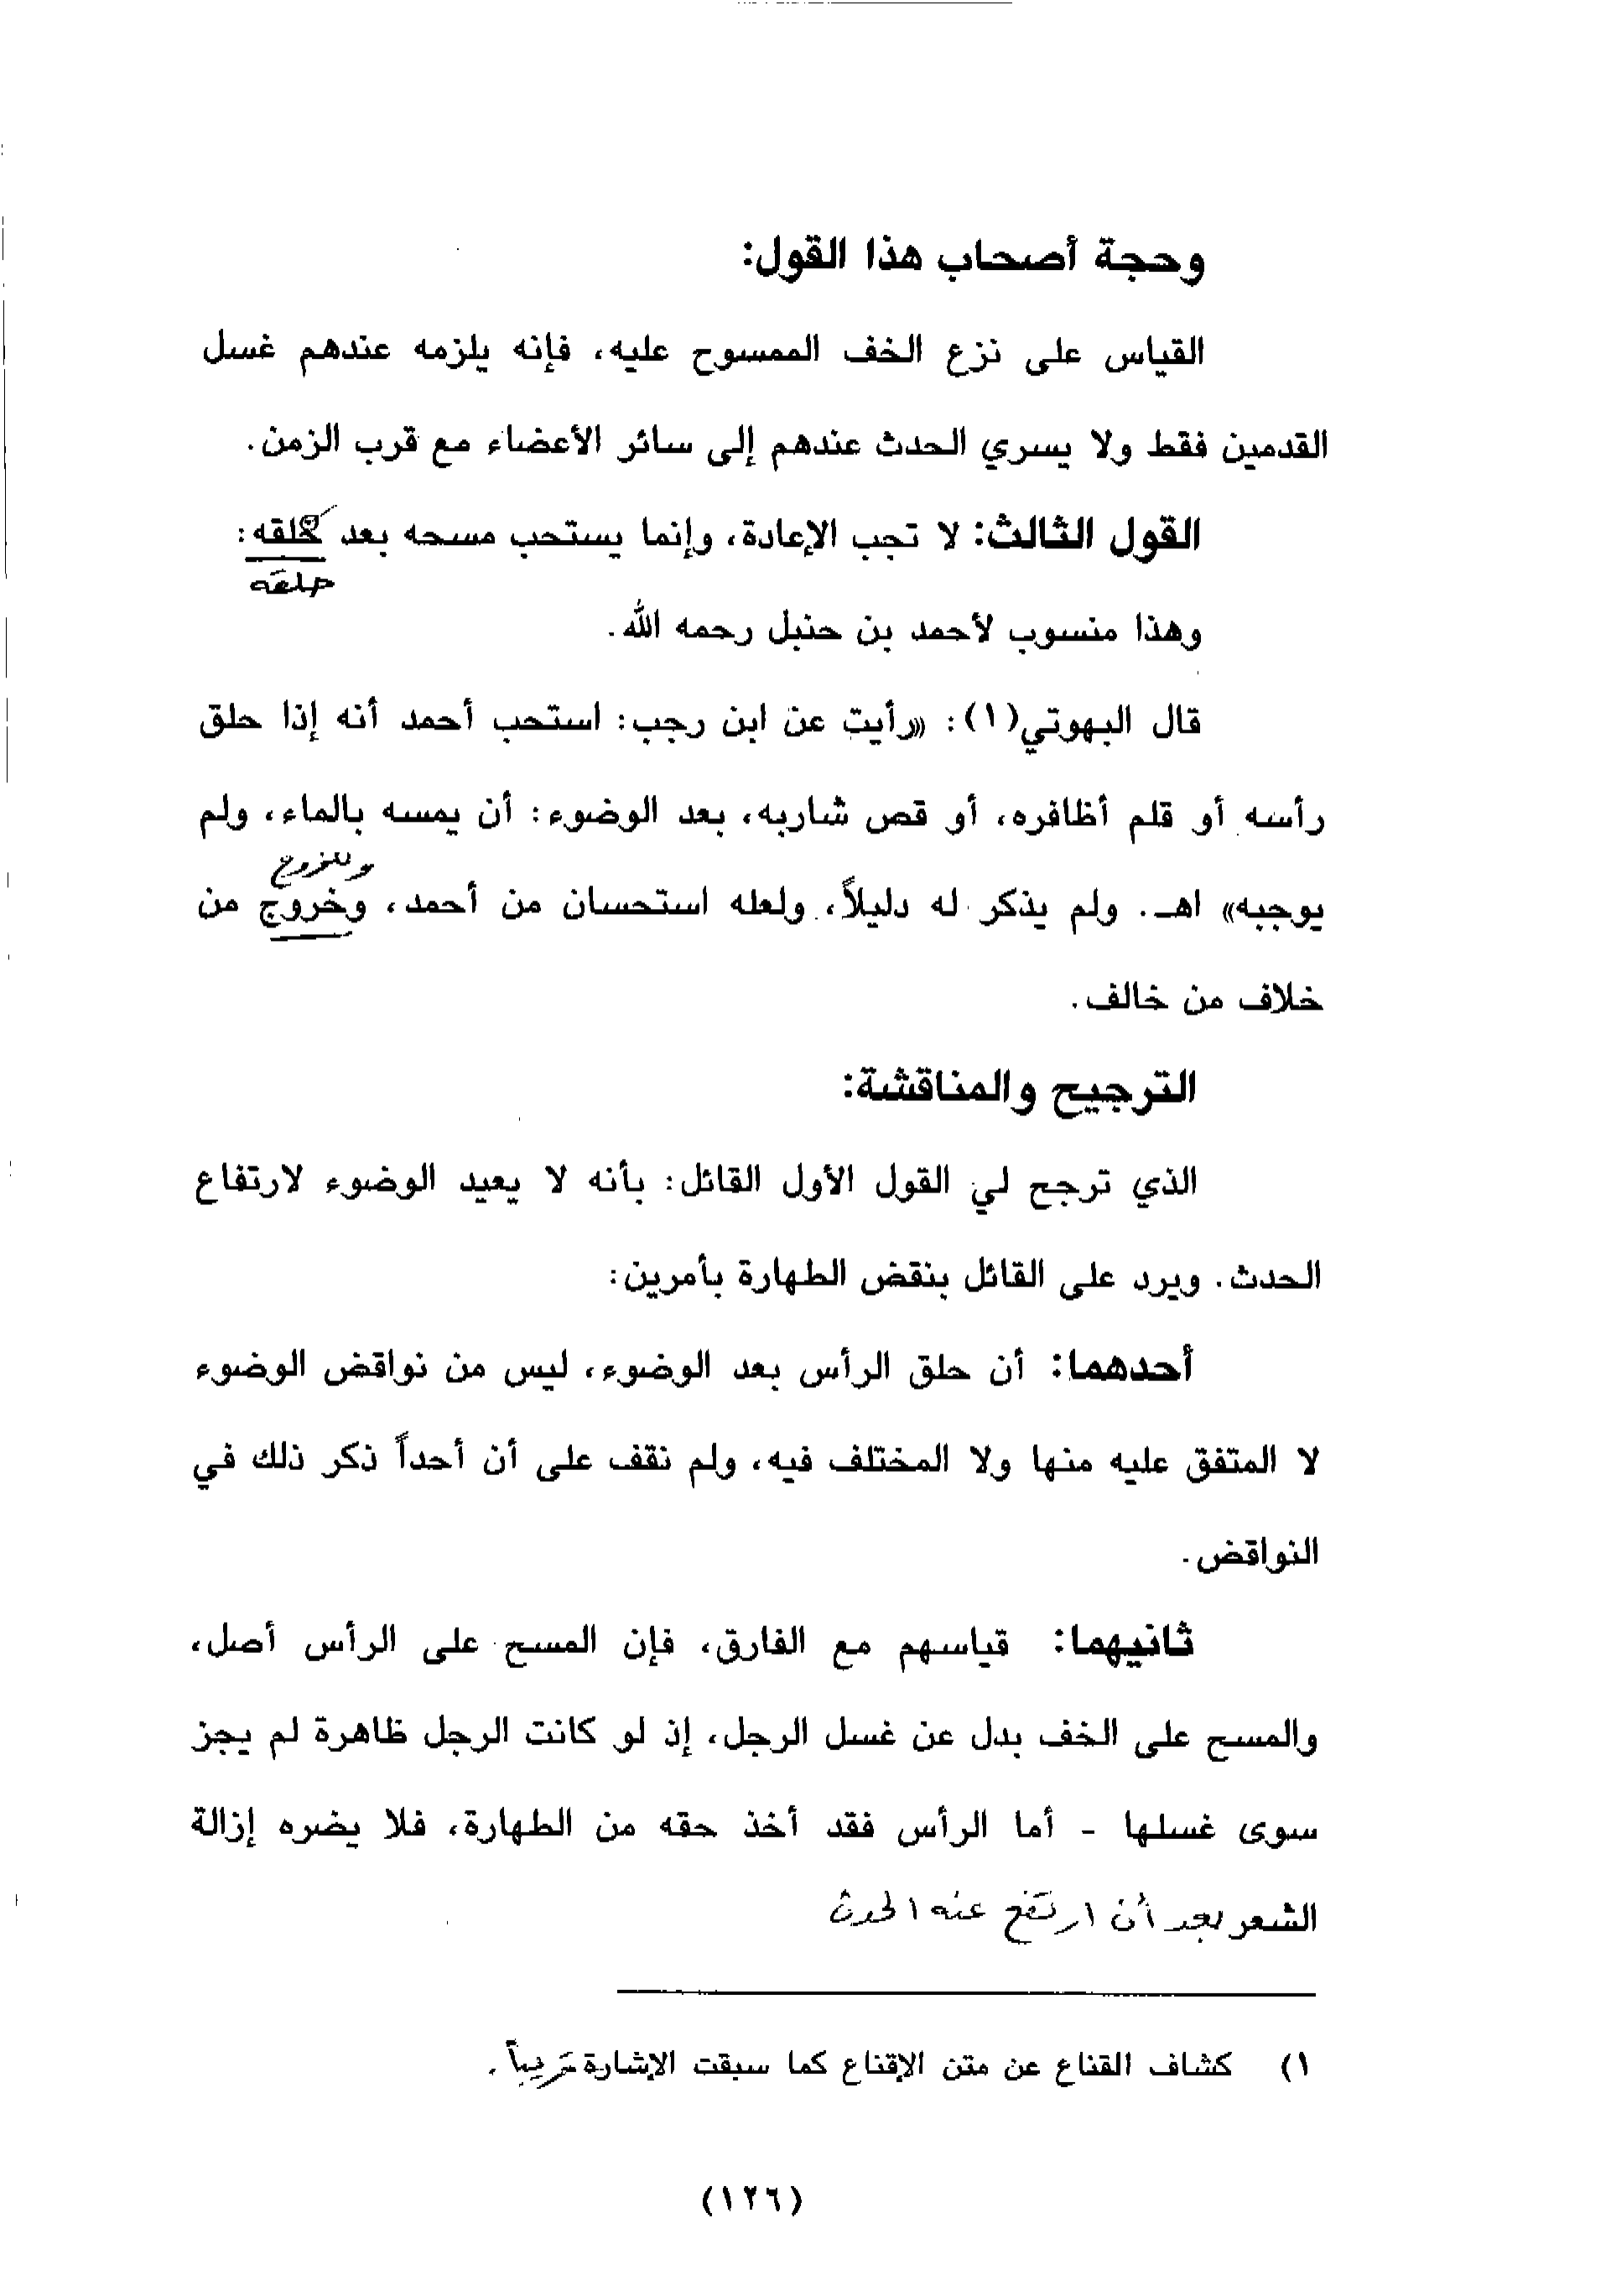 وحجة أصحاب هذا القول:
القياس على نزع الخف الممسوح عليه، فإنه يلزمه عندهم غسل
القدمين فقط ولا يسري الحدث عندهم إلى سائر الأعضاء مع قرب الزمن.
القول الثالث: لا تجب الإعادة، وإنما يستحب مسحه بعد حلقه:
حلقه
وهذا منسوب لأحمد بن حنبل رحمه الله.
قال البهوتي(١): «رأيت عن ابن رجب: استحب أحمد أنه إذا حلق
رأسه أو قلم أظافره، أو قص شاربه، بعد الوضوء: أن يمسه بالماء، ولم
وللخروج
يوجبه» اهـ. ولم يذكر له دليلاً، ولعله استحسان من أحمد، وخروج من
خلاف من خالف.
الترجيح والمناقشة:
الذي ترجح لي القول الأول القائل: بأنه لا يعيد الوضوء لارتفاع
الحدث. ويرد على القائل بنقض الطهارة بأمرين:
أحدهما: أن حلق الرأس بعد الوضوء، ليس من نواقض الوضوء
لا المتفق عليه منها ولا المختلف فيه، ولم نقف على أن أحداً ذكر ذلك في
النواقض.
ثانيهما: قياسهم مع الفارق، فإن المسح على الرأس أصل،
والمسح على الخف بدل عن غسل الرجل، إذ لو كانت الرجل ظاهرة لم يجز
سوى غسلها - أما الرأس فقد أخذ حقه من الطهارة، فلا يضره إزالة
الشعر بعد أن ارتفع عنه الحدث
١) كشاف القناع عن متن الإقناع كما سبقت الإشارة قريباً.
(١٢٦)